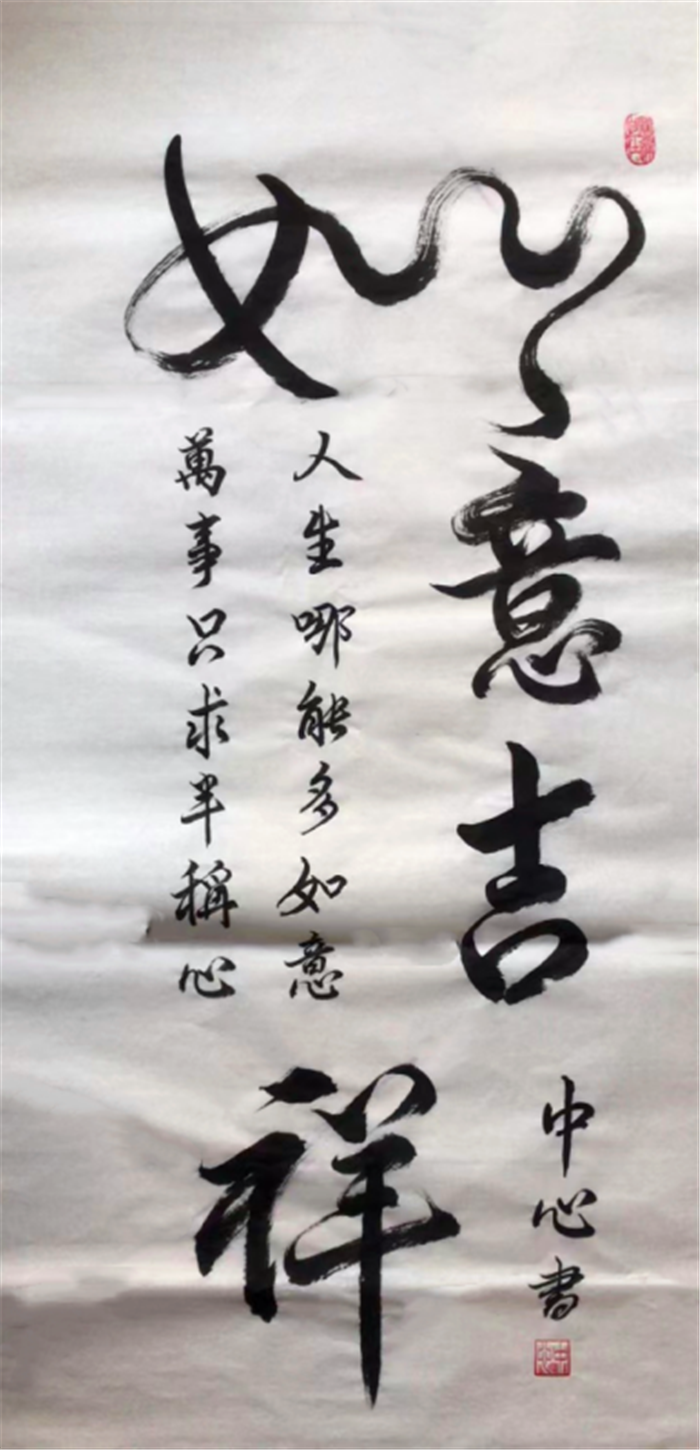 如意吉祥
人生哪能多如意
萬事只求半稱心
中心書